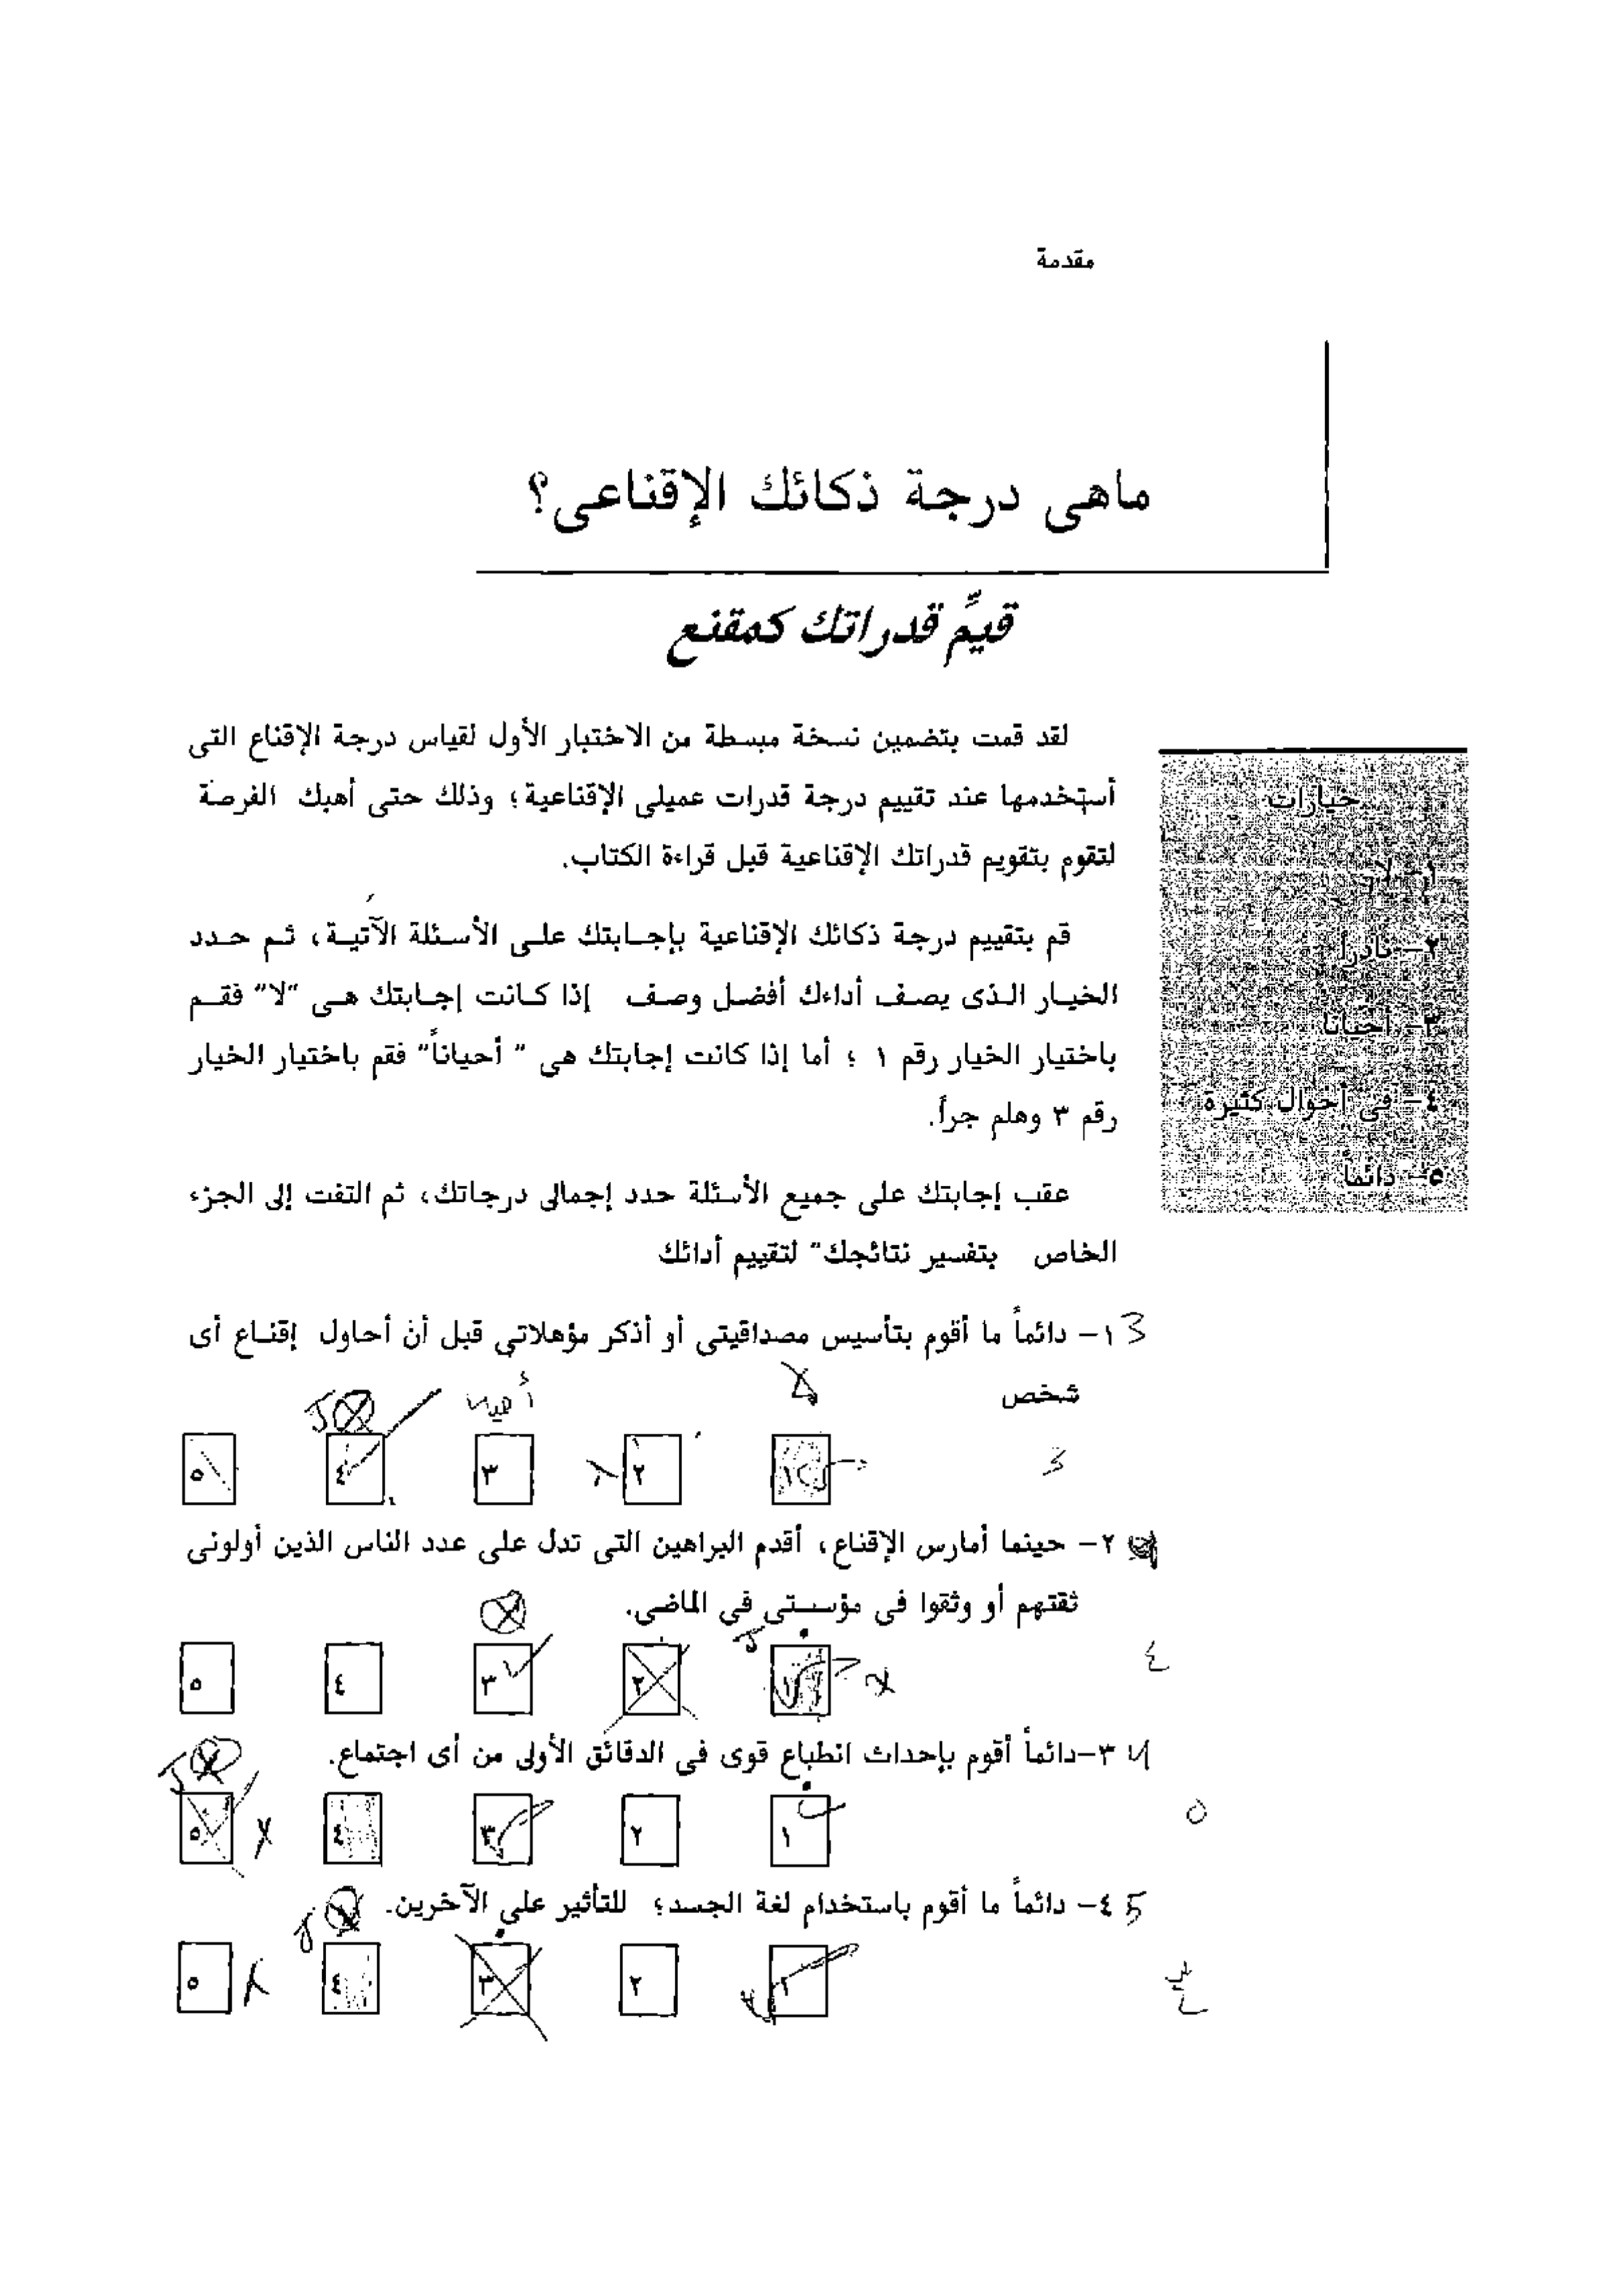 مقدمة
ماهى درجة ذكائك الإقناعى؟
قيِّم قدراتك كمقنع
لقد قمت بتضمين نسخة مبسطة من الاختبار الأول لقياس درجة الإقناع التى
أستخدمها عند تقييم درجة قدرات عميلى الإقناعية؛ وذلك حتى أهبك الفرصة
لتقوم بتقويم قدراتك الإقناعية قبل قراءة الكتاب.
قم بتقييم درجة ذكائك الإقناعية بإجابتك على الأسئلة الآتية، ثم حدد
الخيار الذى يصف أداءك أفضل وصف إذا كانت إجابتك هى "لا" فقم
باختيار الخيار رقم ١ ؛ أما إذا كانت إجابتك هى " أحياناً" فقم باختيار الخيار
رقم ٣ وهلم جراً.
عقب إجابتك على جميع الأسئلة حدد إجمالى درجاتك، ثم التفت إلى الجزء
الخاص بتفسير نتائجك" لتقييم أدائك
خيارات
١- لا
٢- نادراً
٣- أحياناً
٤- فى أحوال كثيرة
٥- دائماً
3 ١- دائماً ما أقوم بتأسيس مصداقيتى أو أذكر مؤهلاتى قبل أن أحاول إقناع أى
شخص
١ ٢ ٣ ٤ ٥
٢- حينما أمارس الإقناع، أقدم البراهين التى تدل على عدد الناس الذين أولونى
ثقتهم أو وثقوا فى مؤسستى فى الماضى.
٤
١ ٢ ٣ ٤ ٥
٣-دائماً أقوم بإحداث انطباع قوى فى الدقائق الأولى من أى اجتماع.
٥
١ ٢ ٣ ٤ ٥
5 ٤- دائماً ما أقوم باستخدام لغة الجسد؛ للتأثير على الآخرين.
١ ٢ ٣ ٤ ٥